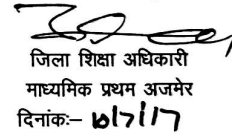 जिला शिक्षा अधिकारी
माध्यमिक प्रथम अजमेर
दिनांक:– 10/7/17